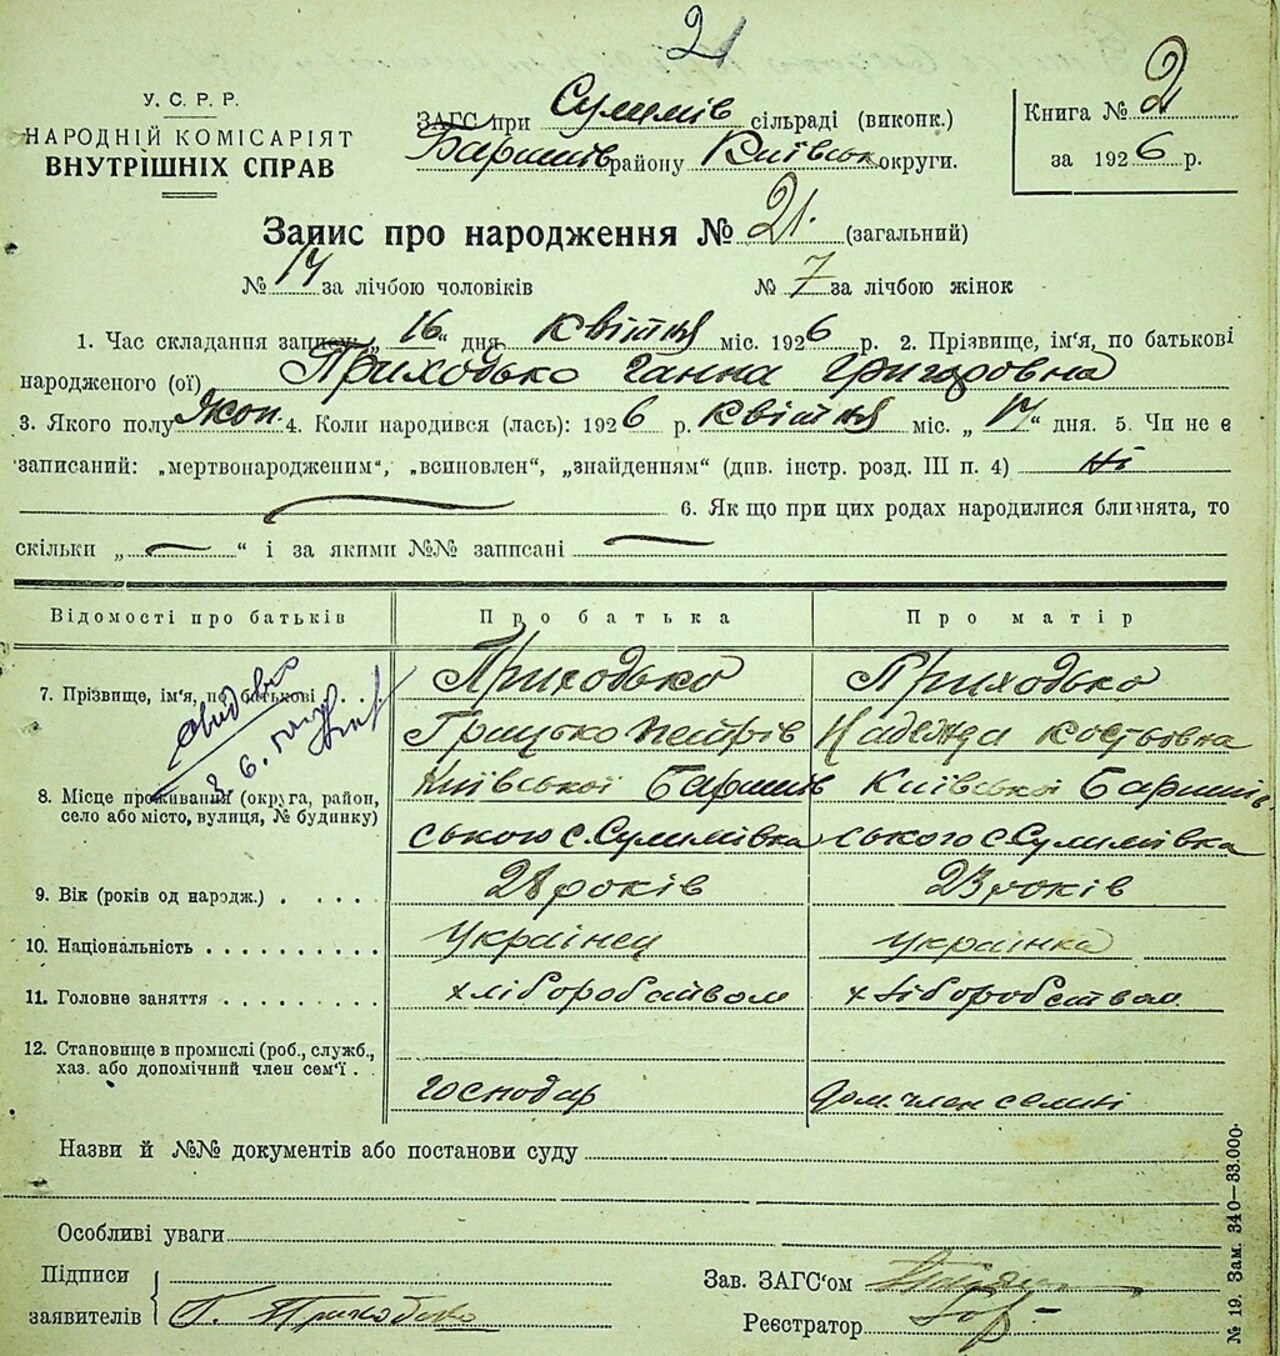 21
У. С. Р. Р.
НАРОДНІЙ КОМІСАРІЯТ
ВНУТРІШНІХ СПРАВ
ЗАГС при Сулимів сільраді (виконк.)
Баришів району Київськ округи.
Книга № 2
за 1926 р.
Запис про народження № 21. (загальний)
№ 14 за лічбою чоловіків № 7 за лічбою жінок
1. Час складання запису „16“ дня квітня міс. 1926 р. 2. Прізвище, ім'я, по батькові
народженого (ої) Приходько Ганна Григоровна
3. Якого полу жон. 4. Коли народився (лась): 1926 р. квітня міс. „ “ дня. 5. Чи не є
записаний: „мертвонародженим“, „всиновлен“, „знайденням“ (див. інстр. розд. III п. 4) ні
6. Як що при цих родах народилися близнята, то
скільки „ “ і за якими №№ записані
Відомості про батьків Про батька Про матір
7. Прізвище, ім'я, по батькові . . Приходько Приходько
Грицько Петрів Надежда Костьовна
8. Місце проживання (округа, район, Київської Баришів Київської Баришів
село або місто, вулиця, № будинку) ського с. Сулимівка ського с. Сулимівка
9. Вік (років од народж.) . . . . . 28 років 23 років
10. Національність . . . . . . . . . . Українец украінка
11. Головне заняття . . . . . . . . . хліборобством хліборобством
12. Становище в промислі (роб., служб.,
хаз. або допомічний член сем'ї . . господар дом. член семні
Назви й №№ документів або постанови суду
Особливі уваги
Підписи
заявителів Г. Приходько
Зав. ЗАГС'ом
Реєстратор
№ 19. Зам. 340—33.000.